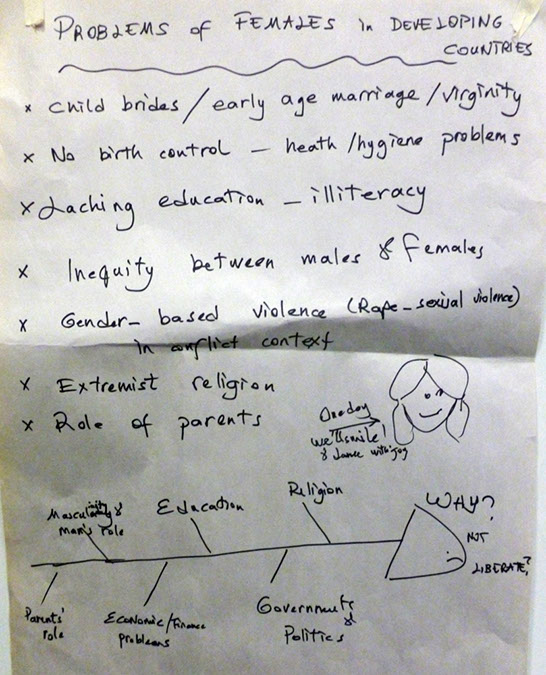 PROBLEMS of FEMALES in DEVELOPING
COUNTRIES
x child brides / early age marriage / virginity
x No birth control - heath / hygiene problems
x Laching education - illiteracy
x Inequity between males & females
x Gender- based violence (Rape - sexual violence)
in conflict context
x Extremist religion
x Role of parents
One day
we'll smile!
& dance with joy
Masculinity &
man's role
Education
Religion
WHY?
NOT
LIBERATE?
Parents'
role
Economic/finance
problems
Governments
&
Politics